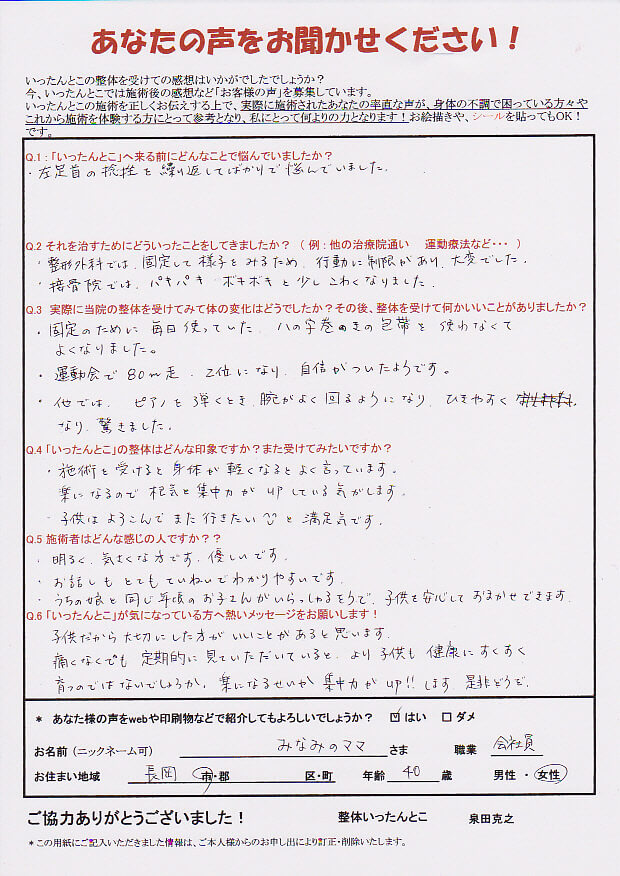 あなたの声をお聞かせください！
いったんとこの整体を受けての感想はいかがでしたでしょうか？
今、いったんとこでは施術後の感想など「お客様の声」を募集しています。
いったんとこの施術を正しくお伝えする上で、実際に施術されたあなたの率直な声が、身体の不調で困っている方々や
これから施術を体験する方にとって参考となり、私にとって何よりの力となります！お絵描きや、シールを貼ってもOK！
です。
Q.1：「いったんとこ」へ来る前にどんなことで悩んでいましたか？
・左足首の捻挫を繰り返してばかりで悩んでいました.
Q.2 それを治すためにどういったことをしてきましたか？（例：他の治療院通い 運動療法など・・・）
・整形外科では、固定して様子をみるため、行動に制限があり、大変でした.
・接骨院では、バキバキ ボキボキと少しこわくなりました.
Q.3 実際に当院の整体を受けてみて体の変化はどうでしたか？その後、整体を受けて何かいいことがありましたか？
・固定のために毎日使っていた、八の字巻きの包帯を使わなくて
よくなりました。
・運動会で80m走、2位になり、自信がついたようです。
・他では、ピアノを弾くとき、腕がよく回るようになり、ひきやすく
なり、驚きました.
Q.4「いったんとこ」の整体はどんな印象ですか？また受けてみたいですか？
・施術を受けると身体が軽くなるとよく言っています。
楽になるので根気と集中力がUPしている気がします.
・子供はよろこんでまた行きたい と満足気です.
Q.5 施術者はどんな感じの人ですか？？
・明るく、気さくな方です、優しいです.
・お話しもとてもていねいでわかりやすいです.
・うちの娘と同じ年頃のお子さんがいらっしゃるそうで、子供を安心しておまかせできます.
Q.6「いったんとこ」が気になっている方へ熱いメッセージをお願いします！
子供だから大切にした方がいいことがあると思います.
痛くなくても定期的に見ていただいていると、より子供も健康にすくすく
育つのではないでしょうか、楽になるせいか集中力がup!!します.是非どうぞ.
＊ あなた様の声をwebや印刷物などで紹介してもよろしいでしょうか？ ☑はい □ダメ
お名前（ニックネーム可） みなみのママ さま 職業 会社員
お住まい地域 長岡 市・郡 区・町 年齢 40 歳 男性・女性
ご協力ありがとうございました！ 整体いったんとこ 泉田克之
＊この用紙にご記入いただきました情報は、ご本人様からのお申し出により訂正・削除いたします。